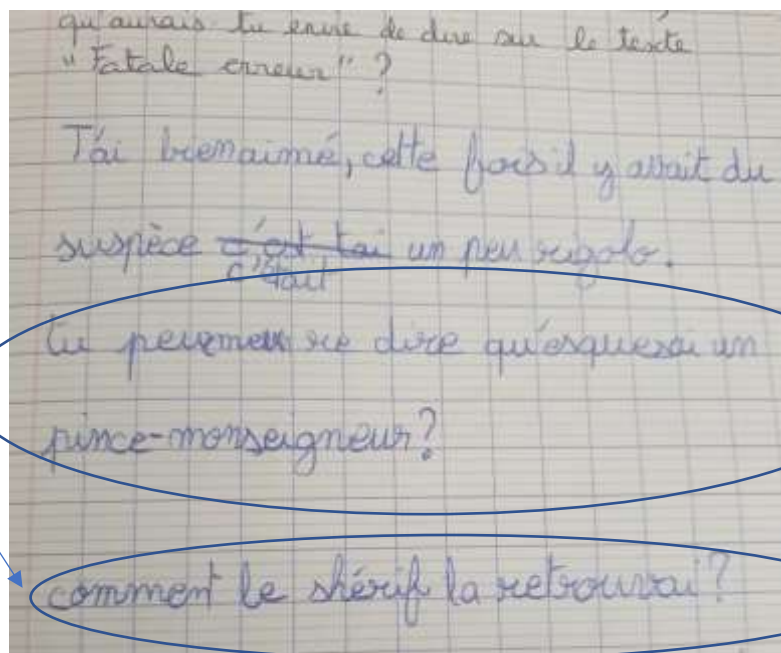 qu'aurais tu envie de dire sur le texte
"Fatale erreur" ?
J'ai bienaimé, cette fois il y avait du
suspèce c'est tai un peu rigolo.
c'était
tu peux re dire qu'esquesai un
pince-monseigneur?
comment le shérif la retrouvai?